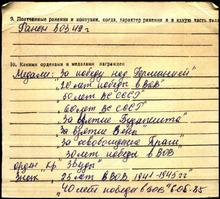 9. Постоянные ранения и контузии, когда, характер ранения и в какую часть
Ранен в 03.42 г
10. Какими орденами и медалями награжден
Медали: "За победу над Германией"
"20 лет победы в ВОВ"
"50 лет ВС СССР"
60 лет ВС СССР
"За взятие Будапешта"
"За взятие Вены"
"За освобождение Праги"
30 лет победы в ВОВ
орден Кр. Звезды
Знак 25 лет в ВОВ 1941-1945 гг
"40 лет победы в ВОВ" 6.05.85